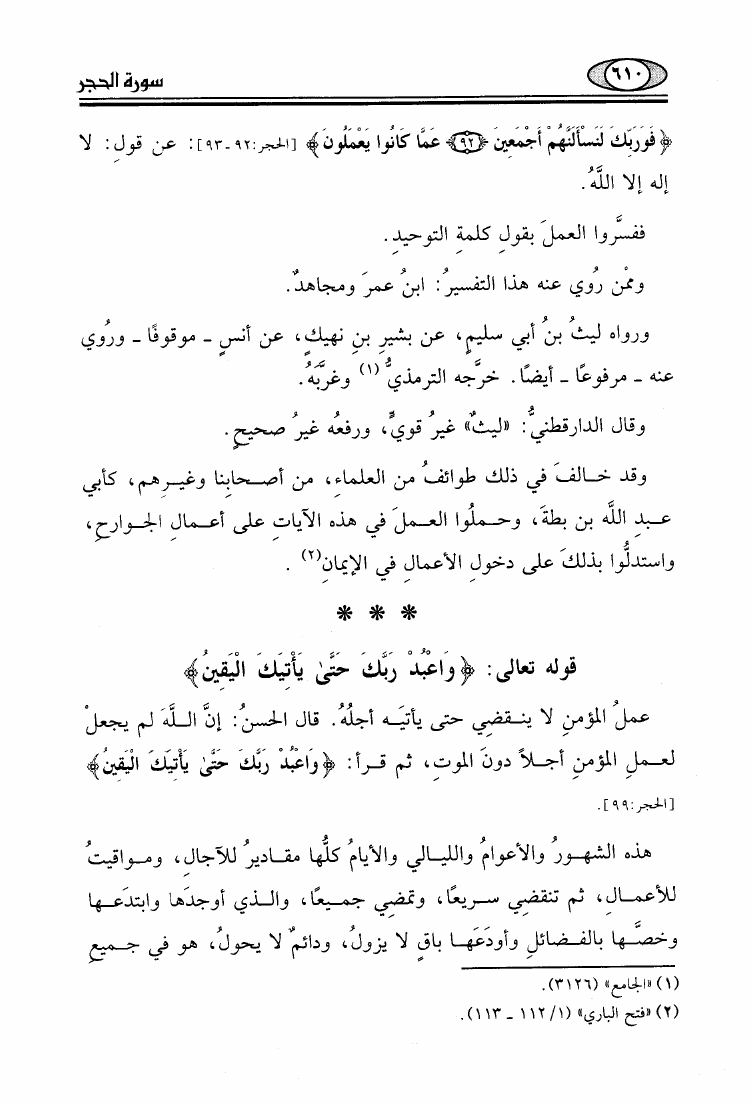 ٦١٠
سورة الحجر
﴿ فَوَرَبِّكَ لَنَسْأَلَنَّهُمْ أَجْمَعِينَ ﴿٩٢﴾ عَمَّا كَانُوا يَعْمَلُونَ ﴾ [الحجر:٩٢-٩٣]: عن قولِ: لا
إله إلا اللَّهُ.
ففسَّروا العملَ بقولِ كلمةِ التوحيدِ.
وممْن رُوي عنه هذا التفسيرُ: ابنُ عمرَ ومجاهدٌ.
ورواه ليثُ بنُ أبي سليمٍ، عن بشيرِ بنِ نهيكٍ، عن أنسٍ - موقوفًا - ورُوي
عنه - مرفوعًا - أيضًا. خرَّجه الترمذيُّ (١) وغربَّهُ.
وقال الدارقطنيُّ: «ليثٌ» غيرُ قويٍّ، ورفعُه غيرُ صحيحٍ.
وقد خالفَ في ذلك طوائفُ من العلماءِ، من أصحابِنا وغيرِهم، كأبي
عبدِ اللَّه بن بطةَ، وحملُوا العملَ في هذه الآياتِ على أعمالِ الجوارحِ،
واستدلُّوا بذلكَ على دخولِ الأعمالِ في الإيمانِ(٢) .
* * *
قوله تعالى: ﴿ وَاعْبُدْ رَبَّكَ حَتَّىٰ يَأْتِيَكَ الْيَقِينُ﴾
عملُ المؤمنِ لا ينقضي حتى يأتيَه أجلُهُ. قال الحسنُ: إنَّ اللَّهَ لم يجعلْ
لعملِ المؤمنِ أجلاً دونَ الموتِ، ثم قرأ: ﴿ وَاعْبُدْ رَبَّكَ حَتَّىٰ يَأْتِيَكَ الْيَقِينُ﴾
[الحجر:٩٩].
هذه الشهورُ والأعوامُ والليالي والأيامُ كلُّها مقاديرُ للآجالِ، ومواقيتُ
للأعمالِ، ثم تنقضي سريعًا، وتمضي جميعًا، والذي أوجدَها وابتدَعها
وخصَّها بالفضائلِ وأودَعَها باقٍ لا يزولُ، ودائمٌ لا يحولُ، هو في جميعِ
(١) «الجامع» (٣١٢٦).
(٢) «فتح الباري» (١/ ١١٢ - ١١٣).